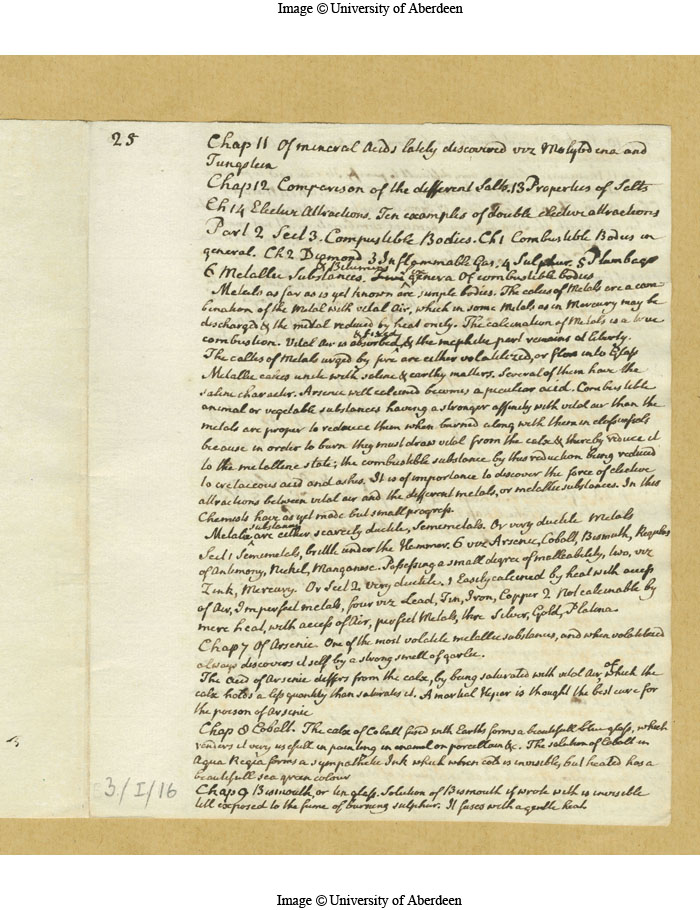 Image © University of Aberdeen
25
Chap 11 Of mineral Acids lately discovered viz Molybdena and
Tungstein
Chap 12 Comparison of the different Salts. 13 Properties of Salts
Ch 14 Elective Attractions. Ten examples of double elective attractions
Part 2 Sect 3. Compustible Bodies. Ch 1 Combustible Bodies in
general. Ch 2 Diamond 3 Inflammable Gas. 4 Sulphur. 5 Plumbago
& Bitumens
6 Metallic Substances. Genera Of combustible bodies
Metals as far as is yet known are simple bodies. The calces of Metals are a com
bination of the Metal with vital Air, which in some Metals as in Mercury may be
discharged & the metal reduced by heat onely. The calcination of Metals is a true
& fixed
combustion. Vital Air is absorbed, & the mephitic part remains at liberty.
The calces of Metals urged by fire are either volatilized, or flow into Glass
Metallic calces unite with saline & earthy matters. Several of them have the
saline character. Arsenic well calcined becomes a peculiar acid. Combustible
animal or vegetable substances having a stronger affinity with vital air than the
metals are proper to reduce them when burned along with them in close vessels
because in order to burn they must draw vital from the calx & thereby reduce it
to the metalline state; the combustible substance by this reduction being reduced
to cretaceous acid and ashes. It is of importance to discover the force of elective
attractions between vital air and the different metals, or metallic substances. In this
Chemists have as yet made but small progress.
substances
Metals are either scarcely ductile, Semimetals. Or very ductile Metals
Sect 1 Semimetals, brittle under the Hammer. 6 viz Arsenic, Cobalt, Bismuth, Regulus
of Antimony, Nickel, Manganese. Possessing a small degree of malleability, two, viz
Zink, Mercury. Or Sect 2 very ductile. 1 Easily calcined by heat with access
of Air, Imperfect metals, four viz Lead, Tin, Iron, Copper 2 Not calcinable by
mere heat, with access of Air, perfect Metals, three Silver, Gold, Platina
Chap 7 Of Arsenic. One of the most volatile metallic substances, and when volatilized
always discovers it self by a strong smell of garlic.
of
The acid of Arsenic differs from the calx, by being saturated with vital Air, which the
calx holds a less quantity than saturates it. A martial Hepar is thought the best cure for
the poison of Arsenic
Chap 8 Cobalt. The calx of Cobalt fused with Earths forms a beautifull blue glass, which
renders it very usefull in painting in enamel on porcellain &c. The solution of Cobalt in
Aqua Regia forms a sympathetic Ink which when cold is invisible, but heated has a
beautifull sea green colour
Chap 9 Bismouth, or tin glass. Solution of Bismouth if wrote with is invisible
till exposed to the fume of burning sulphur. It fuses with a gentle heat
3/I/16
Image © University of Aberdeen